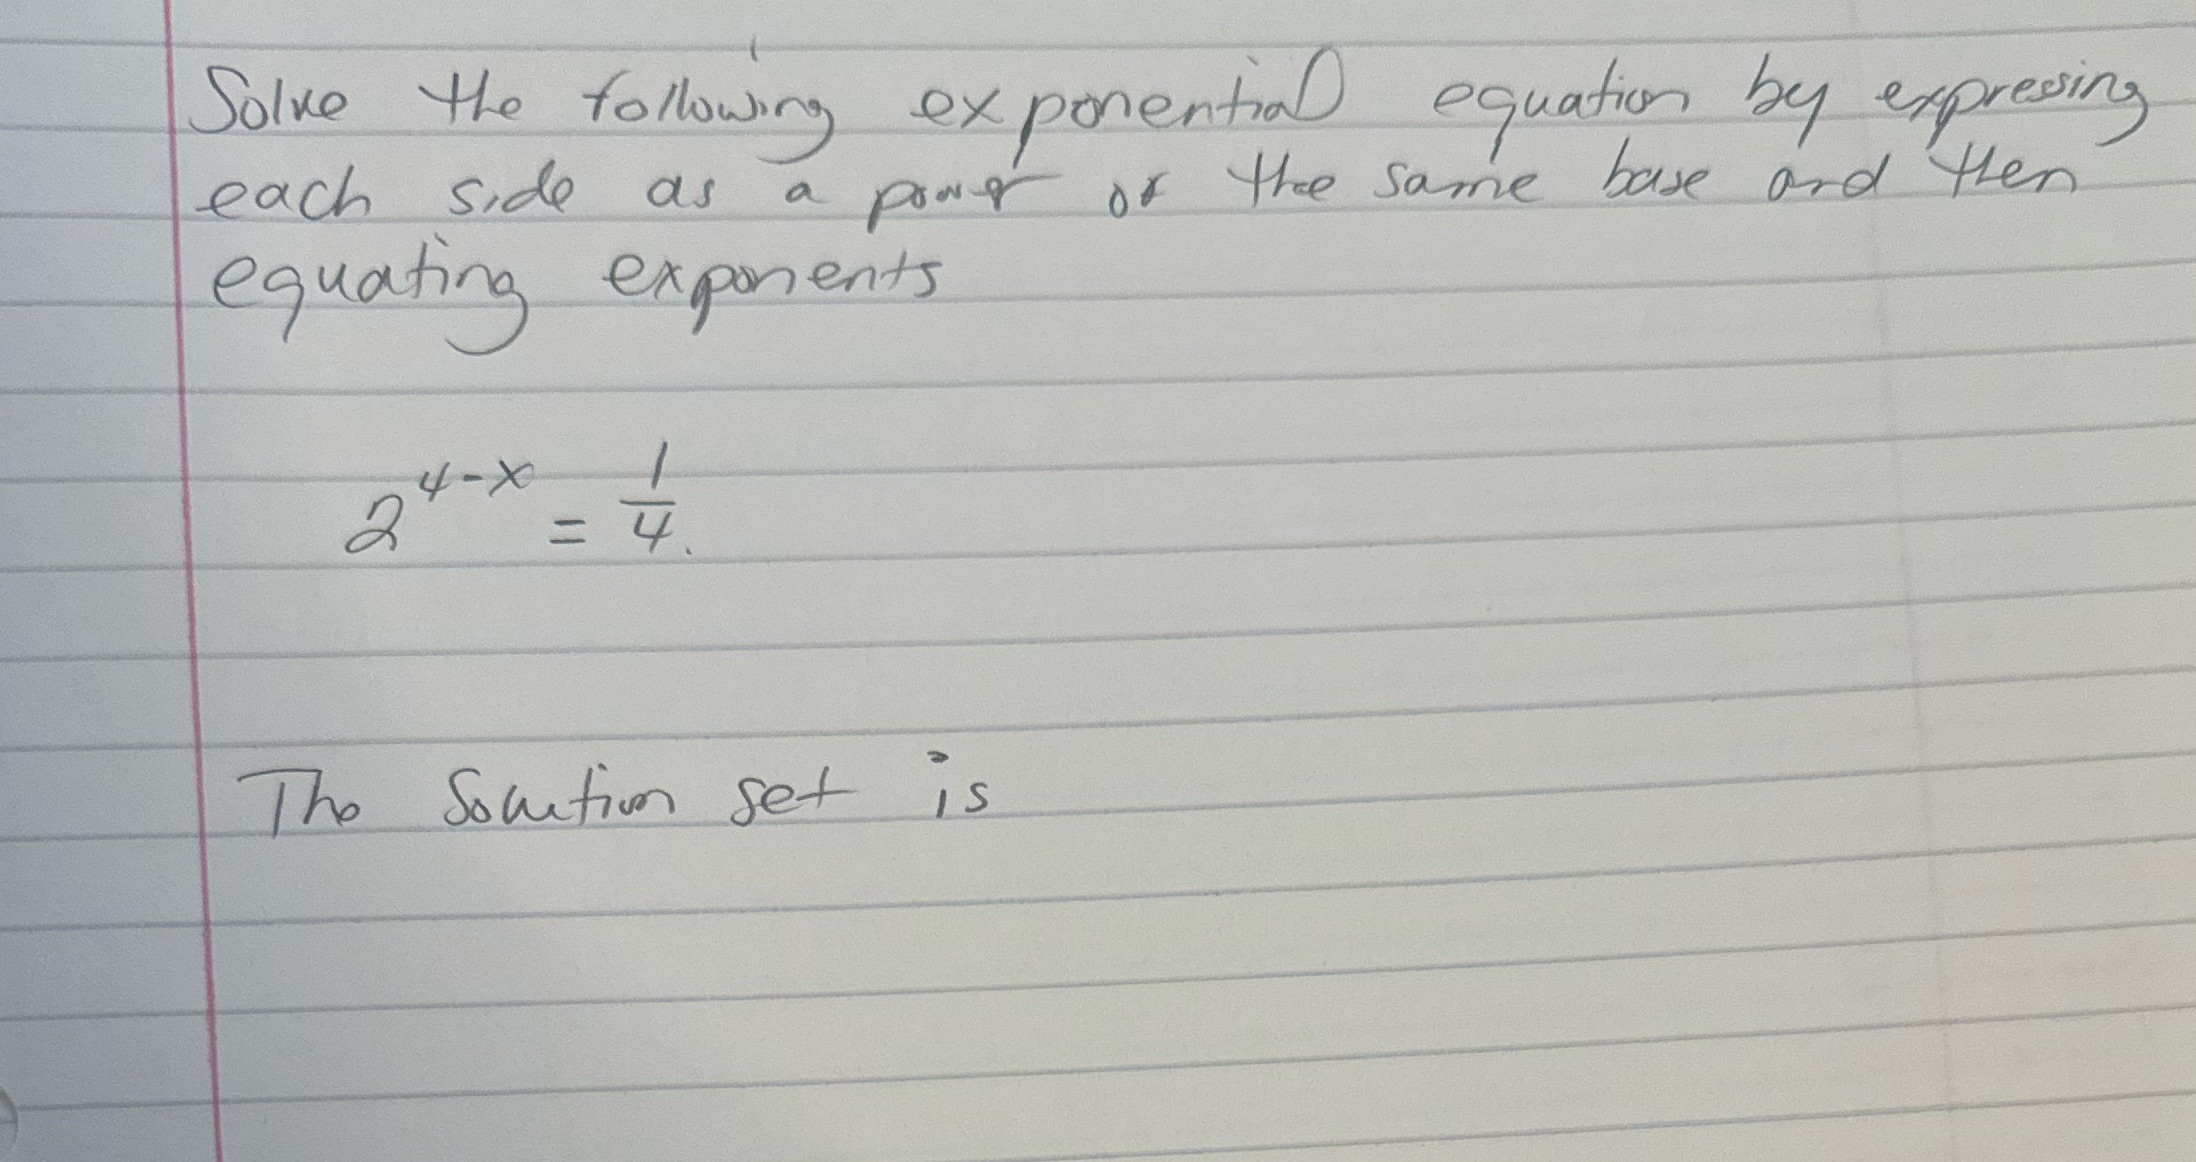 Solve the following exponential equation by expressing
each side as a power of the same base and then
equating exponents
2^{4-x} = 1/4.
The Solution set is